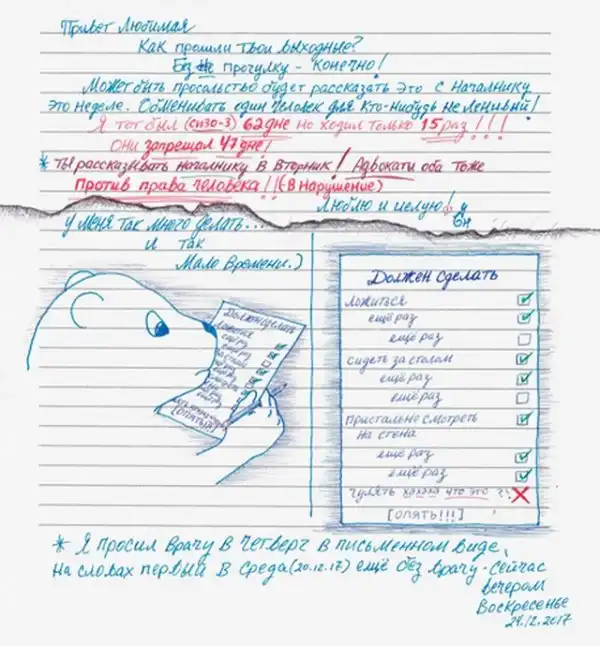 Привет Любимая
Как прошли твои выходные?
Без прогулку - конечно!
Может быть просольство будет рассказать это с началнику
это неделе. Обменивать один человек для кто-нибудь не ленивый!
Я тот был (СИЗО-3) 62 дне но ходил только 15 раз!!!
Они запрещал 47 дне!
* Ты рассказывать началнику в вторник! Адвокати оба тоже
Против права человека!! (-В Нарушение)
Люблю и целую!
у меня так много делать...
и так
Мало времени.)
Должен сделать
ложиться
ещё раз
ещё раз
сидеть за столом
ещё раз
ещё раз
пристально смотреть
на стена
ещё раз
ещё раз
гулять хахаха что это ??
[ОПЯТЬ!!!]
Должен сделать
ложиться
[ОПЯТЬ!!!]
* Я просил врачу в четверг в письменном виде,
на словах первый в среда (20.12.17) ещё без врачу - сейчас
вечером
Воскресенье
24.12.2017